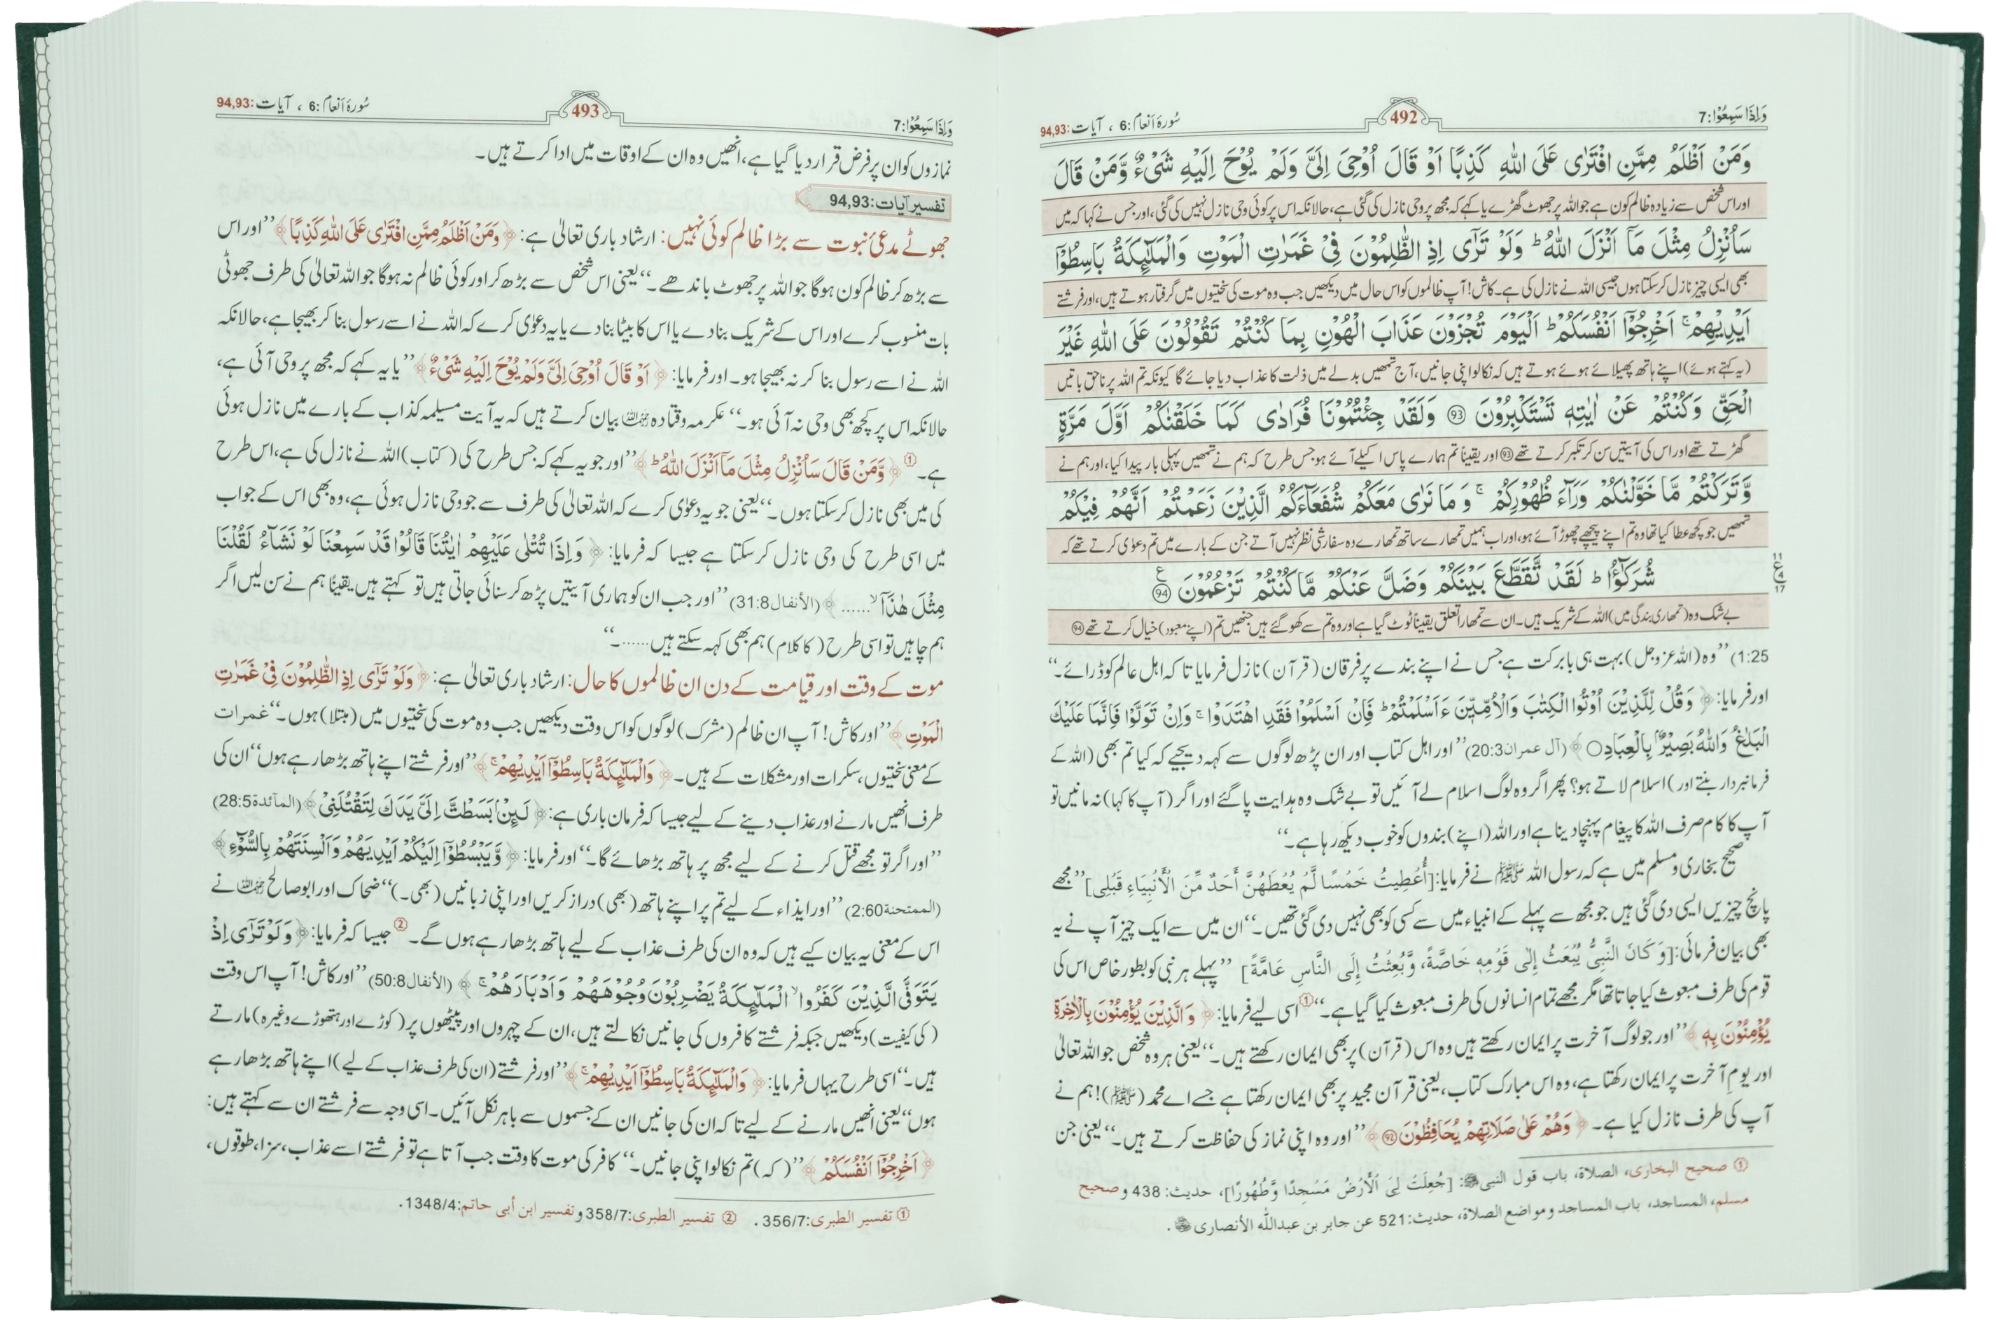 وَاِذَا سَمِعُوْا:7
492
سُورۂ اَنعام :6 ، آیات:94,93
وَمَنْ اَظْلَمُ مِمَّنِ افْتَرٰى عَلَى اللّٰهِ كَذِبًا اَوْ قَالَ اُوْحِىَ اِلَىَّ وَلَمْ يُوْحَ اِلَيْهِ شَىْءٌ وَّمَنْ قَالَ
اور اس شخص سے زیادہ ظالم کون ہے جو اللہ پر جھوٹ گھڑے یا کہے کہ مجھ پر وحی نازل کی گئی ہے، حالانکہ اس پر کوئی وحی نازل نہیں کی گئی، اور جس نے کہا کہ میں
سَاُنْزِلُ مِثْلَ مَآ اَنْزَلَ اللّٰهُ ؕ وَلَوْ تَرٰٓى اِذِ الظّٰلِمُوْنَ فِىْ غَمَرٰتِ الْمَوْتِ وَالْمَلٰٓئِكَةُ بَاسِطُوْٓا
بھی ایسی چیز نازل کر سکتا ہوں جیسی اللہ نے نازل کی ہے۔ کاش! آپ ظالموں کو اس حال میں دیکھیں جب وہ موت کی سختیوں میں گرفتار ہوتے ہیں، اور فرشتے
اَيْدِيْهِمْ ۚ اَخْرِجُوْٓا اَنْفُسَكُمْ ؕ اَلْيَوْمَ تُجْزَوْنَ عَذَابَ الْهُوْنِ بِمَا كُنْتُمْ تَقُوْلُوْنَ عَلَى اللّٰهِ غَيْرَ
(یہ کہتے ہوئے) اپنے ہاتھ پھیلائے ہوئے ہوتے ہیں کہ نکالو اپنی جانیں، آج تمھیں بدلے میں ذلت کا عذاب دیا جائے گا کیونکہ تم اللہ پر ناحق باتیں
الْحَقِّ وَكُنْتُمْ عَنْ اٰيٰتِهٖ تَسْتَكْبِرُوْنَ ﴿93﴾ وَلَقَدْ جِئْتُمُوْنَا فُرَادٰى كَمَا خَلَقْنٰكُمْ اَوَّلَ مَرَّةٍ
گھڑتے تھے اور اس کی آیتیں سن کر تکبر کرتے تھے ﴿93﴾ اور یقیناً تم ہمارے پاس اکیلے آئے ہو جس طرح کہ ہم نے تمھیں پہلی بار پیدا کیا، اور ہم نے
وَّتَرَكْتُمْ مَّا خَوَّلْنٰكُمْ وَرَآءَ ظُهُوْرِكُمْ ۚ وَمَا نَرٰى مَعَكُمْ شُفَعَآءَكُمُ الَّذِيْنَ زَعَمْتُمْ اَنَّهُمْ فِيْكُمْ
تمھیں جو کچھ عطا کیا تھا وہ تم اپنے پیچھے چھوڑ آئے ہو، اور اب ہمیں تمھارے ساتھ تمھارے وہ سفارشی نظر نہیں آتے جن کے بارے میں تم دعوٰی کرتے تھے کہ
شُرَكٰٓؤُا ؕ لَقَدْ تَّقَطَّعَ بَيْنَكُمْ وَضَلَّ عَنْكُمْ مَّا كُنْتُمْ تَزْعُمُوْنَ ﴿94﴾
11 ع 4 17
بے شک وہ (تمھاری بندگی میں) اللہ کے شریک ہیں۔ ان سے تمھارا تعلق یقیناً ٹوٹ گیا ہے اور وہ تم سے کھو گئے ہیں جنھیں تم (اپنے معبود) خیال کرتے تھے ﴿94﴾
1:25) ’’وہ (اللہ عزوجل) بہت ہی بابرکت ہے جس نے اپنے بندے پر فرقان (قرآن) نازل فرمایا تاکہ اہل عالم کو ڈرائے۔‘‘
اور فرمایا: ﴿ وَقُلْ لِّلَّذِيْنَ اُوْتُوا الْكِتٰبَ وَالْاُمِّيّٖنَ ءَاَسْلَمْتُمْ ؕ فَاِنْ اَسْلَمُوْا فَقَدِ اهْتَدَوْا ۚ وَاِنْ تَوَلَّوْا فَاِنَّمَا عَلَيْكَ
الْبَلٰغُ ؕ وَاللّٰهُ بَصِيْرٌۢ بِالْعِبَادِ○ ﴾ (آل عمران 20:3) ’’اور اہل کتاب اور ان پڑھ لوگوں سے کہہ دیجیے کہ کیا تم بھی (اللہ کے
فرمانبردار بنتے اور) اسلام لاتے ہو؟ پھر اگر وہ لوگ اسلام لے آئیں تو بے شک وہ ہدایت پا گئے اور اگر (آپ کا کہا) نہ مانیں تو
آپ کا کام صرف اللہ کا پیغام پہنچا دینا ہے اور اللہ (اپنے) بندوں کو خوب دیکھ رہا ہے۔‘‘
صحیح بخاری و مسلم میں ہے کہ رسول اللہ ﷺ نے فرمایا: [أُعْطِيتُ خَمْسًا لَّمْ يُعْطَهُنَّ أَحَدٌ مِّنَ الْأَنْبِيَاءِ قَبْلِي] ’’مجھے
پانچ چیزیں ایسی دی گئی ہیں جو مجھ سے پہلے کے انبیاء میں سے کسی کو بھی نہیں دی گئی تھیں۔‘‘ ان میں سے ایک چیز آپ نے یہ
بھی بیان فرمائی: [وَكَانَ النَّبِيُّ يُبْعَثُ إِلٰى قَوْمِهٖ خَاصَّةً، وَّبُعِثْتُ إِلَى النَّاسِ عَامَّةً] ’’پہلے ہر نبی کو بطور خاص اس کی
قوم کی طرف مبعوث کیا جاتا تھا مگر مجھے تمام انسانوں کی طرف مبعوث کیا گیا ہے۔‘‘① اسی لیے فرمایا: ﴿ وَالَّذِيْنَ يُؤْمِنُوْنَ بِالْاٰخِرَةِ
يُؤْمِنُوْنَ بِهٖ ﴾ ’’اور جو لوگ آخرت پر ایمان رکھتے ہیں وہ اس (قرآن) پر بھی ایمان رکھتے ہیں۔‘‘ یعنی ہر وہ شخص جو اللہ تعالیٰ
اور یومِ آخرت پر ایمان رکھتا ہے، وہ اس مبارک کتاب، یعنی قرآن مجید پر بھی ایمان رکھتا ہے جسے اے محمد (ﷺ)! ہم نے
آپ کی طرف نازل کیا ہے۔ ﴿ وَهُمْ عَلٰى صَلَاتِهِمْ يُحَافِظُوْنَ ﴿92﴾ ﴾ ’’اور وہ اپنی نماز کی حفاظت کرتے ہیں۔‘‘ یعنی جن
① صحيح البخاري، الصلاة، باب قول النبي ﷺ: [جُعِلَتْ لِيَ الْأَرْضُ مَسْجِدًا وَّطَهُورًا]، حديث: 438 و صحيح
مسلم، المساجد، باب المساجد ومواضع الصلاة، حديث: 521 عن جابر بن عبدالله الأنصاري ؓ .
وَاِذَا سَمِعُوْا:7
493
سُورۂ اَنعام :6 ، آیات:94,93
نمازوں کو ان پر فرض قرار دیا گیا ہے، انھیں وہ ان کے اوقات میں ادا کرتے ہیں۔
تفسیر آیات:94,93
جھوٹے مدعیٔ نبوت سے بڑا ظالم کوئی نہیں: ارشاد باری تعالیٰ ہے: ﴿ وَمَنْ اَظْلَمُ مِمَّنِ افْتَرٰى عَلَى اللّٰهِ كَذِبًا ﴾ ’’اور اس
سے بڑھ کر ظالم کون ہوگا جو اللہ پر جھوٹ باندھے۔‘‘ یعنی اس شخص سے بڑھ کر اور کوئی ظالم نہ ہوگا جو اللہ تعالیٰ کی طرف جھوٹی
بات منسوب کرے اور اس کے شریک بنا دے یا اس کا بیٹا بنا دے یا یہ دعوٰی کرے کہ اللہ نے اسے رسول بنا کر بھیجا ہے، حالانکہ
اللہ نے اسے رسول بنا کر نہ بھیجا ہو۔ اور فرمایا: ﴿ اَوْ قَالَ اُوْحِىَ اِلَىَّ وَلَمْ يُوْحَ اِلَيْهِ شَىْءٌ ﴾ ’’یا یہ کہے کہ مجھ پر وحی آئی ہے،
حالانکہ اس پر کچھ بھی وحی نہ آئی ہو۔‘‘ عکرمہ و قتادہ رحمہما اللہ بیان کرتے ہیں کہ یہ آیت مسیلمہ کذاب کے بارے میں نازل ہوئی
ہے۔① ﴿ وَّمَنْ قَالَ سَاُنْزِلُ مِثْلَ مَآ اَنْزَلَ اللّٰهُ ؕ ﴾ ’’اور جو یہ کہے کہ جس طرح کی (کتاب) اللہ نے نازل کی ہے، اس طرح
کی میں بھی نازل کر سکتا ہوں۔‘‘ یعنی جو یہ دعوٰی کرے کہ اللہ تعالیٰ کی طرف سے جو وحی نازل ہوئی ہے، وہ بھی اس کے جواب
میں اسی طرح کی وحی نازل کر سکتا ہے جیسا کہ فرمایا: ﴿ وَاِذَا تُتْلٰى عَلَيْهِمْ اٰيٰتُنَا قَالُوْا قَدْ سَمِعْنَا لَوْ نَشَآءُ لَقُلْنَا
مِثْلَ هٰذَآ ۙ...... ﴾ (الأنفال 31:8) ’’اور جب ان کو ہماری آیتیں پڑھ کر سنائی جاتی ہیں تو کہتے ہیں یقیناً ہم نے سن لیں اگر
ہم چاہیں تو اسی طرح (کا کلام) ہم بھی کہہ سکتے ہیں......۔‘‘
موت کے وقت اور قیامت کے دن ان ظالموں کا حال: ارشاد باری تعالیٰ ہے: ﴿ وَلَوْ تَرٰٓى اِذِ الظّٰلِمُوْنَ فِىْ غَمَرٰتِ
الْمَوْتِ ﴾ ’’اور کاش! آپ ان ظالم (مشرک) لوگوں کو اس وقت دیکھیں جب وہ موت کی سختیوں میں (مبتلا) ہوں۔‘‘ غمرات
کے معنی سختیوں، سکرات اور مشکلات کے ہیں۔ ﴿ وَالْمَلٰٓئِكَةُ بَاسِطُوْٓا اَيْدِيْهِمْ ۚ ﴾ ’’اور فرشتے اپنے ہاتھ بڑھا رہے ہوں‘‘ ان کی
طرف انھیں مارنے اور عذاب دینے کے لیے جیسا کہ فرمان باری ہے: ﴿ لَىِٕنْۢ بَسَطْتَّ اِلَىَّ يَدَكَ لِتَقْتُلَنِىْ ﴾ (المآئدة 28:5)
’’اور اگر تو مجھے قتل کرنے کے لیے مجھ پر ہاتھ بڑھائے گا۔‘‘ اور فرمایا: ﴿ وَّيَبْسُطُوْٓا اِلَيْكُمْ اَيْدِيَهُمْ وَاَلْسِنَتَهُمْ بِالسُّوْٓءِ ﴾
(الممتحنة 2:60) ’’اور ایذاء کے لیے تم پر اپنے ہاتھ (بھی) دراز کریں اور اپنی زبانیں (بھی۔)‘‘ ضحاک اور ابوصالح رحمہما اللہ نے
اس کے معنی یہ بیان کیے ہیں کہ وہ ان کی طرف عذاب کے لیے ہاتھ بڑھا رہے ہوں گے۔② جیسا کہ فرمایا: ﴿ وَلَوْ تَرٰٓى اِذْ
يَتَوَفَّى الَّذِيْنَ كَفَرُوا ۙ الْمَلٰٓئِكَةُ يَضْرِبُوْنَ وُجُوْهَهُمْ وَاَدْبَارَهُمْ ۚ ﴾ (الأنفال 50:8) ’’اور کاش! آپ اس وقت
(کی کیفیت) دیکھیں جبکہ فرشتے کافروں کی جانیں نکالتے ہیں، ان کے چہروں اور پیٹھوں پر (کوڑے اور ہتھوڑے وغیرہ) مارتے
ہیں۔‘‘ اسی طرح یہاں فرمایا: ﴿ وَالْمَلٰٓئِكَةُ بَاسِطُوْٓا اَيْدِيْهِمْ ۚ ﴾ ’’اور فرشتے (ان کی طرف عذاب کے لیے) اپنے ہاتھ بڑھا رہے
ہوں‘‘ یعنی انھیں مارنے کے لیے تاکہ ان کی جانیں ان کے جسموں سے باہر نکل آئیں۔ اسی وجہ سے فرشتے ان سے کہتے ہیں:
﴿ اَخْرِجُوْٓا اَنْفُسَكُمْ ﴾ ’’(کہ) تم نکالو اپنی جانیں۔‘‘ کافر کی موت کا وقت جب آتا ہے تو فرشتے اسے عذاب، سزا، طوقوں،
① تفسير الطبري: 356/7 . ② تفسير الطبري: 358/7 و تفسير ابن أبي حاتم: 1348/4.